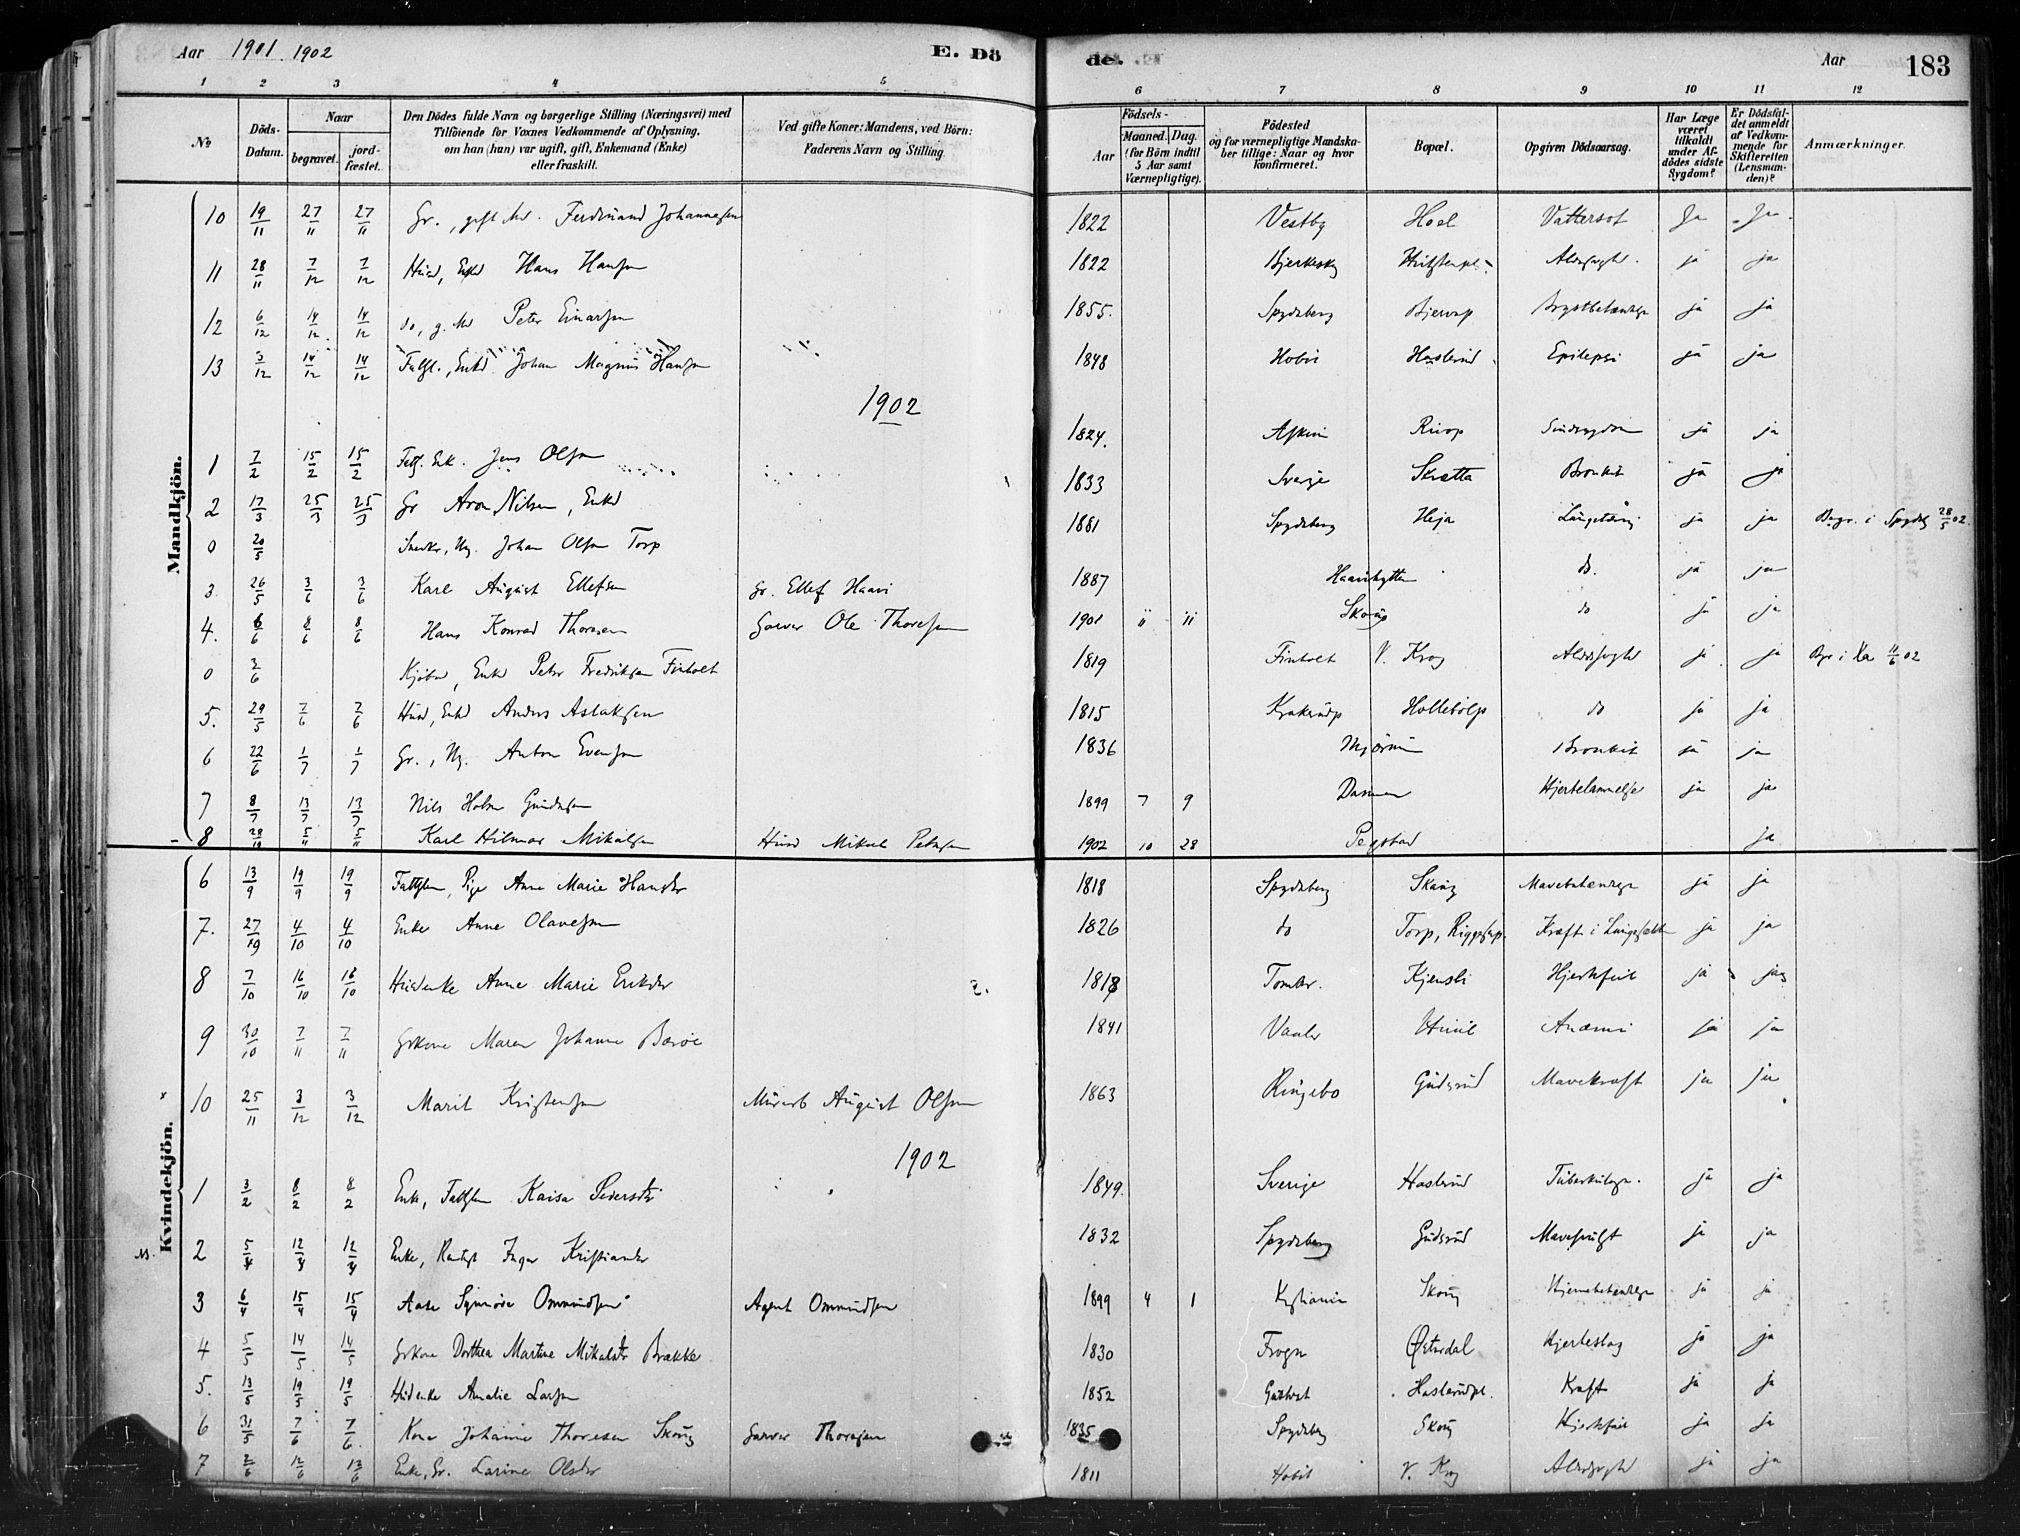 Aar 1901. 1902 E. Dö de. Aar 183
1 2 3 4 5 6 7 8 9 10 11 12
No Döds-Datum. Naar begravet. jordfæstet. Den Dödes fulde Navn og borgerlige Stilling (Næringsvei) med Tilföiende for Voxnes Vedkommende af Oplysning, om han (hun) var ugift, gift, Enkemand (Enke) eller fraskilt. Ved gifte Koner: Mandens, ved Börn: Faderens Navn og Stilling. Födsels- Aar Maaned. Dag. (for Börn indtil 5 Aar samt Værnepligtige). Födested og for værnepligtige Mandskaber tillige: Naar og hvor konfirmeret. Bopæl. Opgiven Dödsaarsag. Har Læge været tilkaldt under Afdödes sidste Sygdom? Er Dödsfaldet anmeldt af Vedkommende for Skifteretten (Lensmanden)? Anmærkninger.
Mandkjön.
10 19/11 27/11 27/11 Gr., gift Md. Ferdinand Johannesen 1822 Vestby Hoel Vattersot Ja Ja
11 28/11 7/12 7/12 Husm, Enkd Hans Hansen 1822 ja ja
12 6/12 14/12 14/12 do, g. Md Peter Einarsen 1855. Spydeberg Bjerup Brystbetændelse ja ja
13 3/12 14/12 14/12 Fattgl., Enkd Johan Magnus Hansen 1848 Hobøl Haslerud Epilepsi ja ja
1902
1 7/2 15/2 15/2 Fatg. Enk. Jens Olsen 1824. Askim ja ja
2 17/3 25/3 25/3 Gr Aron Nilsen, Enkd 1833 Sverge Skrætta Bronkit ja ja
0 20/5 Snedker, Ug. Johan Olsen Torp 1881 Spydeberg Heja Lungetæring ja ja Begr. i Spydbg 28/5 02.
3. 26/5 3/6 3/6 Karl August Ellefsen Gr. Ellef Haavi 1887 do. ja ja
4. 6/6 8/6 8/6 Hans Konrad Thoresen Garver Ole Thoresen 1901 11 11 Skoug do ja ja
0 2/6 Enkd Peter Fredriksen Finholt 1819 Finholt V. Krog ja ja 11/6 02
5. 29/5 7/6 7/6 Husm, Enkd Anders Aslaksen 1815 do ja ja
6 22/6 1/7 1/7 Gr., Ug. Anton Evensen 1836 Bronkit ja ja
7 8/7 13/7 13/7 Nils Holm Gundersen 1899 7 9 Hjertelammelse ja ja
8 28/10 5/11 5/11 Karl Hilmar Mikalsen Husm Mikael Petersen 1902 10 28 ja
Kvindekjön.
6 13/9 19/9 19/9 Fattglem, Pige Anne Marie Hansdtr 1818 Spydeberg Skaug Mavebetændelse ja ja
7. 27/9 4/10 4/10 Enke Anne Olavesen 1826 do Torp, Kræft i ja ja
8 7/10 16/10 16/10 Husenke Anne Marie Eriksdtr 1818 Tomter. Kjensli Hjertefeil ja ja
9 30/10 7/11 7/11 Grkone Maren Johanne Borøe 1841 Vaaler Anæmi ja ja
10 25/11 3/12 3/12 Marit Kristensen Murarb August Olsen 1863 Ringebo Gudsrud Mavekræft ja ja
1902
1 3/2 8/2 8/2 Enke, Fattglem Kaisa Pedersdtr 1849. Sverige Haslerud Tuberkulose. ja ja
2 5/4 12/4 12/4 Enke, Inger Kristiansdr 1832 Spydeberg Gudsrud ja ja
3 6/4 15/4 15/4 Aase Synnøve Ommundsen Agent Ommundsen 1899 4 1 Kristiania Skoug Hjernebetændelse ja ja
4 5/5 14/5 14/5 Grkone Dorthea Martine Mikalsdtr Brække 1830 Frogn Østerdal Hjerteslag ja ja
5. 13/5 19/5 19/5 Husenke Amalie Larsen 1852 Haslerudpl. Kræft ja ja
6 31/5 7/6 7/6. Kone Johanne Thoresen Skoug Garver Thoresen 1835 Spydeberg Skoug Hjertefeil ja ja
7 2/6 12/6 13/6 Enke, Gr. Larine Olsdtr 1811 Hobøl V. Krog ja ja